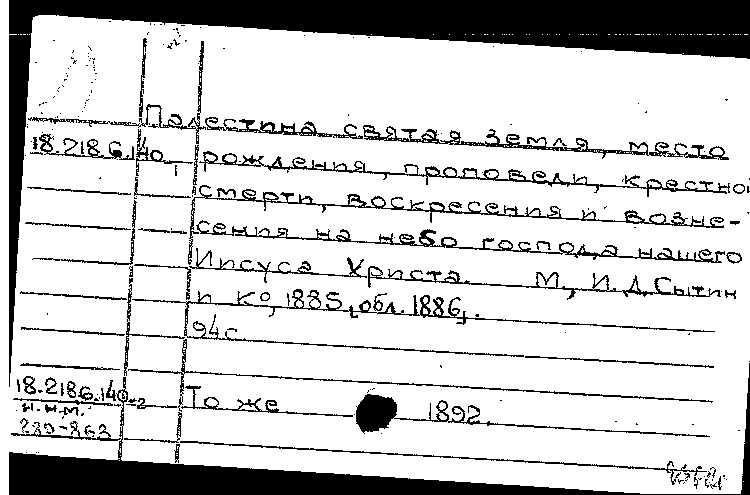 Палестина святая земля, место
18.218.6.140-1 рождения, проповеди, крестной
смерти, воскресения и возне-
сения на небо господа нашего
Иисуса Христа. М., И.Д.Сытин
и К°, 1885, [обл. 1886].
94с.
18.218.6.140-2 То же 1892.
Н.Н.М.
289-863